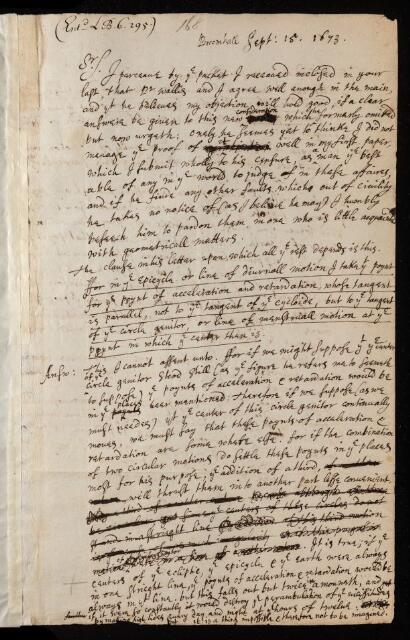 (Ent.d LB. 6. 295.) 168
Broomhall Sept: 15. 1673.
Sr/
I perceaue by ye packet I receaued inclosed in your
last that Dr Wallis and I agree well enough in the main,
and yt he beleeues my objection will hold good, if a clear
answere be given to this new which I formerly omitted
but now urgeth; onely he seemes yet to thinke I did not
manage ye proof of well in my first paper,
which I submit wholly to his censure, as a man ye best
able of any in ye world to judge of me in these affaires,
and if he finde any other faults, which out of civility
he takes no notice of (as I beleeve he may) I humbly
beseech him to pardon them in one who is little acquainted
with geometricall matters.
The clause in his letter upon which all ye rest depends is this.
For in ye Epicycle or line of diurnall motion I take ye poynt
for ye poynt of acceleration and retardation, whose tangent
is parallel, not to ye tangent of ye cycloide, but to ye tangent
of ye circle genitor, or line of menstruall motion at ye
poynt in which ye center than is.
Answ: This I cannot assent unto. ffor if we might suppose yt ye center
circle genitor stood still (as ye figure he refers me to seemeth
to suppose) ye poynts of acceleration & retardation would be
in ye places heer mentioned. therefore if we suppose, as we
must needes, yt ye center of this circle genitor continually
moues, we must say that these poynts of acceleration &
retardation are some where else. for if the combination
of two circular motions do settle these poynts in ye places
most for his purpose, ye addition of a third,
will thrust them into another part lesse convenient.
It is true, if ye
centers of ye ecliptic, ye epicycle & ye earth were always
in one streight line, ye poynts of acceleration & retardation would be
always in yt line, but this falls out but twice a moneth, and
if it were so constantly it would destroy ye perambulation of ye
by making high tides every day and make at ye hours of twelve
it is a thing impossible & therefore not to be imagined.